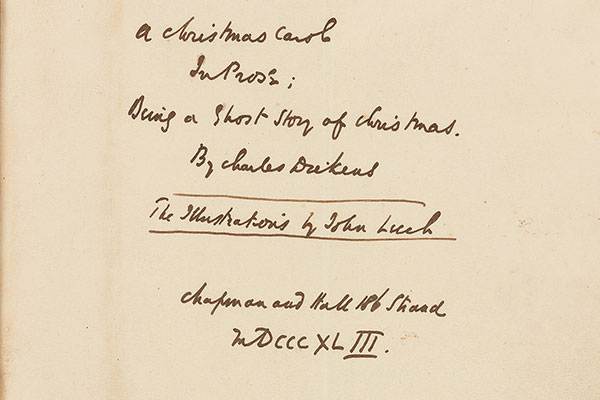 A Christmas Carol
In Prose;
Being a Ghost Story of Christmas.
By Charles Dickens
The Illustrations by John Leech
Chapman and Hall 186 Strand
MDCCCXLIII.